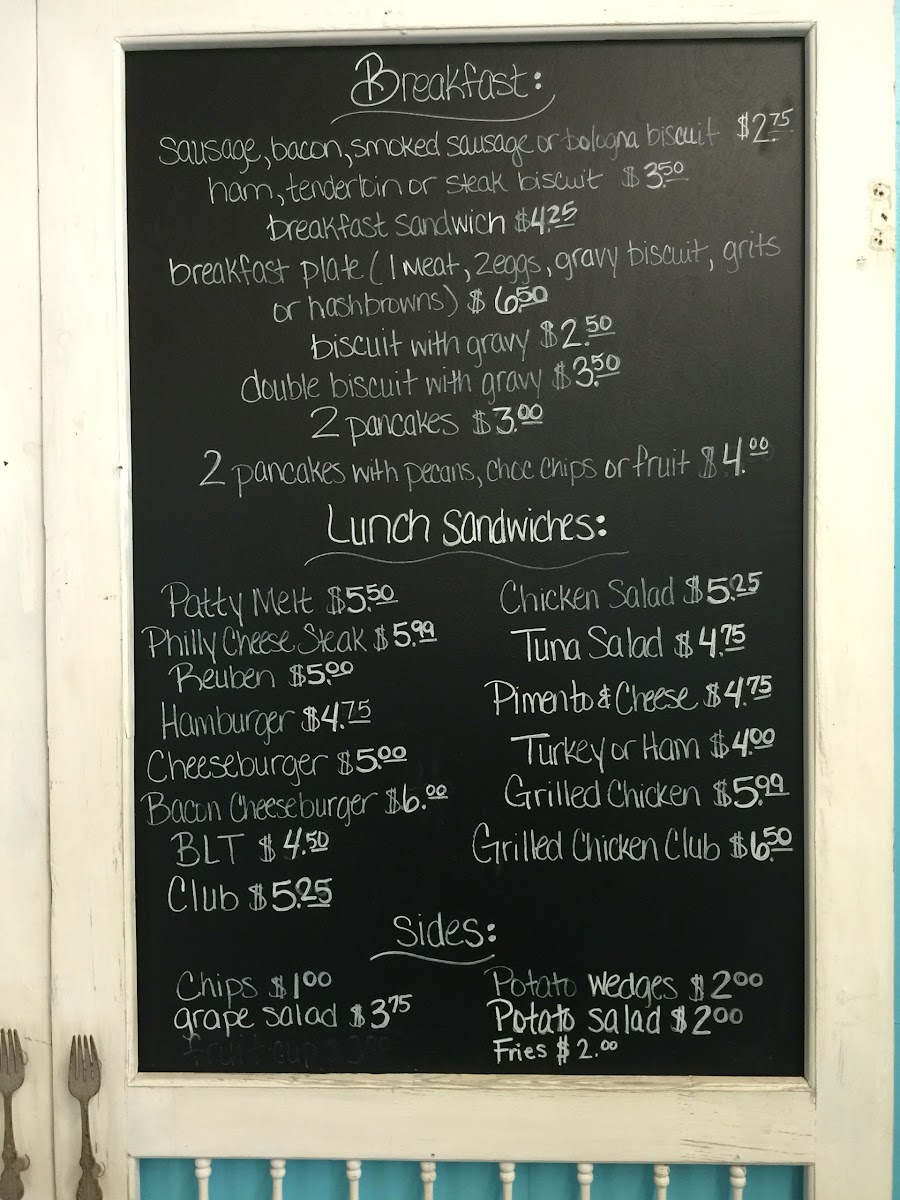 Breakfast:
sausage, bacon, smoked sausage or bologna biscuit $2.75
ham, tenderloin or steak biscuit $3.50
breakfast sandwich $4.25
breakfast plate (1 meat, 2 eggs, gravy biscuit, grits
or hashbrowns) $6.50
biscuit with gravy $2.50
double biscuit with gravy $3.50
2 pancakes $3.00
2 pancakes with pecans, choc chips or fruit $4.00
Lunch Sandwiches:
Patty Melt $5.50
Philly Cheese Steak $5.99
Reuben $5.00
Hamburger $4.75
Cheeseburger $5.00
Bacon Cheeseburger $6.00
BLT $4.50
Club $5.25
Chicken Salad $5.25
Tuna Salad $4.75
Pimento & Cheese $4.75
Turkey or Ham $4.00
Grilled Chicken $5.99
Grilled Chicken Club $6.50
Sides:
Chips $1.00
grape salad $3.75
fruit cup $3.00
Potato wedges $2.00
Potato salad $2.00
Fries $2.00